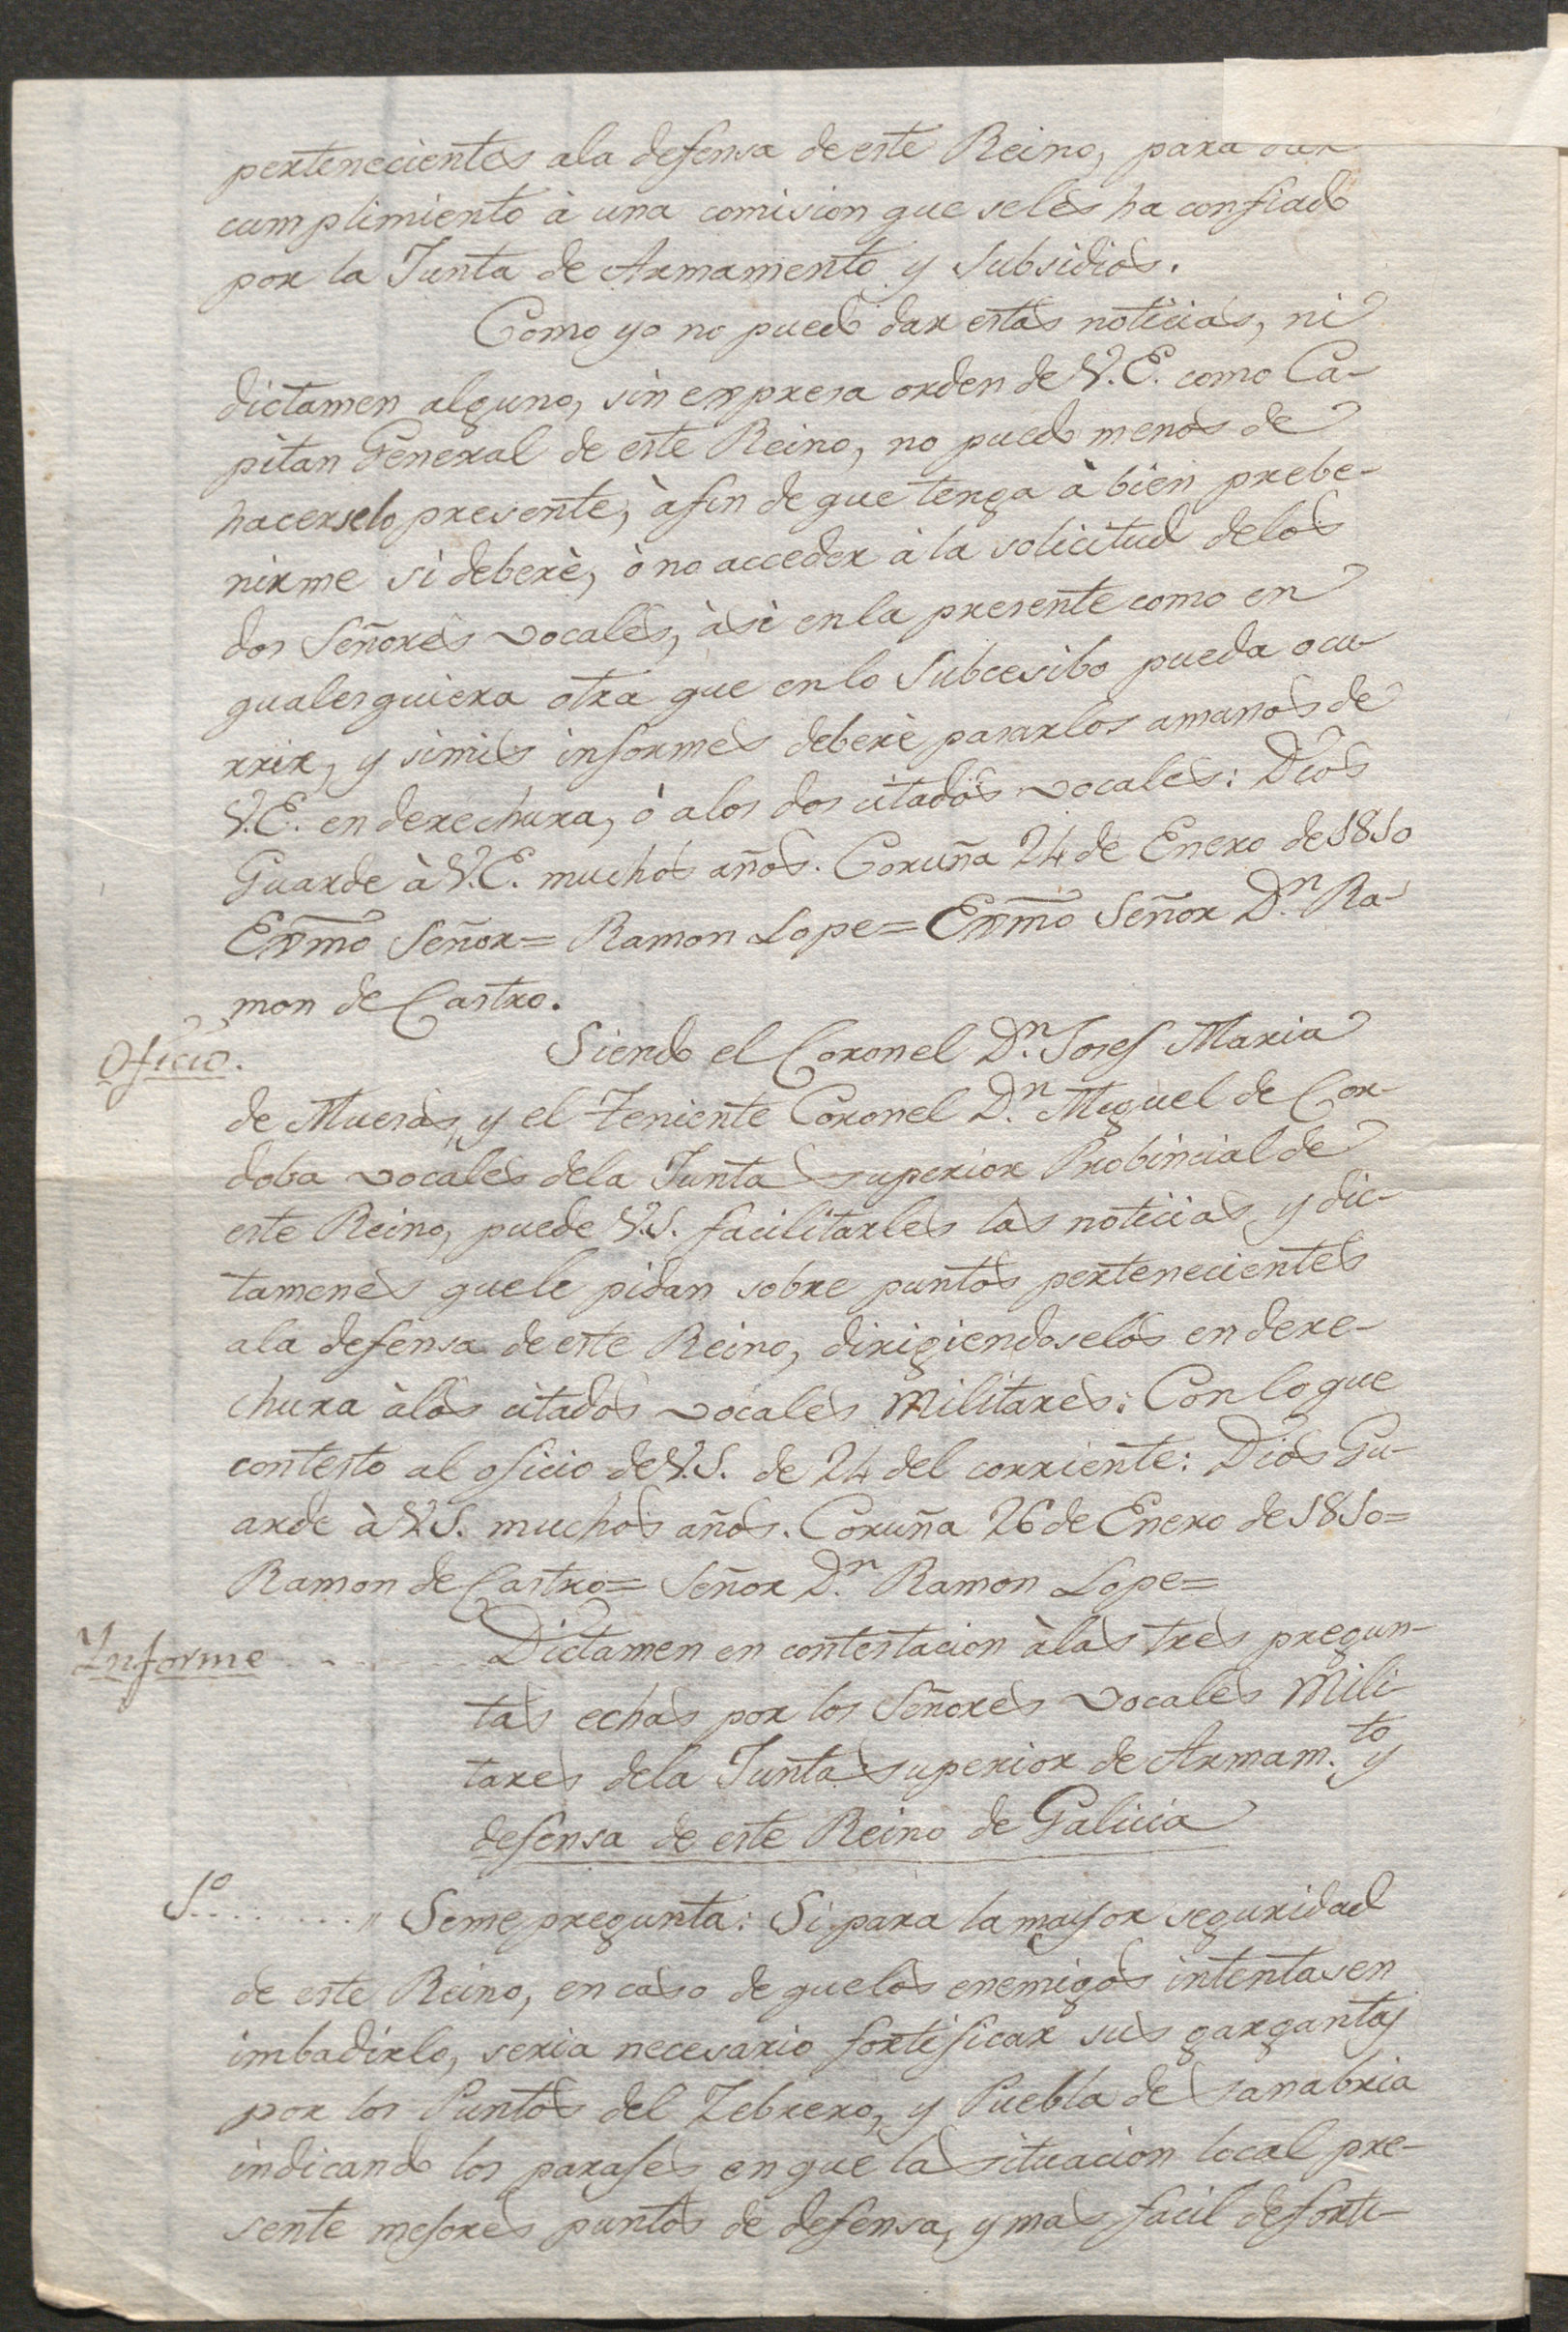 pertenecientes ala defensa de este Reino, para dar
cumplimiento à una comision que seles ha confiado
por la Junta de Armamento y Subsidios.
Como yo no puedo dar estas noticias, ni
dictamen alguno, sin expresa orden de V.E. como Ca-
pitan General de este Reino, no puedo menos de
hacerselo presente, àfin de que tenga à bien prebe-
nirme si deberè, ò no acceder à la solicitud delos
dos Señores vocales, àsi en la presente como en
qualesquiera otra que en lo Subcesibo pueda ocu-
rrir, y simis informes deberè pasarlos amanos de
V.E. en derechura, ò alos dos citados vocales: Dios
Guarde à V.E. muchos años. Coruña 24 de Enero de 1810
Exmo Señor= Ramon Lope= Exmo Señor Dn. Ra-
mon de Castro.
Oficio. Siendo el Coronel Dn. Josef Maria
de Mueras, y el Teniente Coronel Dn. Miguel de Cor-
doba vocales dela Junta superior Probincial de
este Reino, puede V.S. facilitarles las noticias y dic-
tamenes quele pidan sobre puntos pertenecientes
ala defensa de este Reino, dirigiendoselos en dere-
chura àlos citados vocales Militares: Con lo que
contesto al oficio de V.S. de 24 del corriente: Dios Gu-
arde à V.S. muchos años. Coruña 26 de Enero de 1810=
Ramon de Castro= Señor Dn. Ramon Lope=
Informe Dictamen en contestacion àlas tres pregun-
tas echas por los Señores vocales Mili-
tares dela Junta superior de Armam.to y
defensa de este Reino de Galicia
1º........ " Seme pregunta: Si para la mayor seguridad
de este Reino, en caso de quelos enemigos intentasen
imbadirlo, seria necesario fortificar sus gargantas
por los Puntos del Zebrero, y Puebla de Sanabria
indicando los parajes en que la situacion local pre-
sente mejores puntos de defensa, y mas facil deforti-